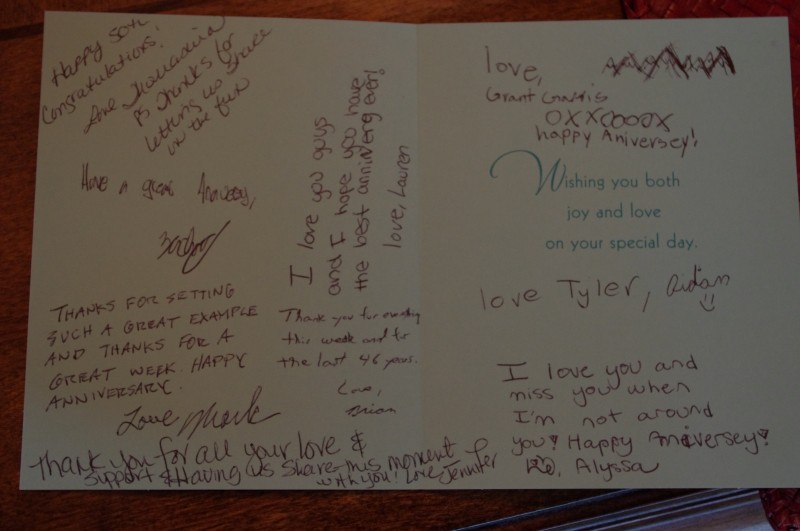 Happy 50th
Congratulations!
Love Thomasina
PS Thanks for
letting us share
in the fun
Have a great
I love you guys
and I hope you have
the best anniverg ever!
love, Lauren
THANKS FOR SETTING
SUCH A GREAT EXAMPLE
AND THANKS FOR A
GREAT WEEK. HAPPY
ANNIVERSARY.
Love Mark
Thank you for everything
this week and for
the last 46 years.
Love,
Brian
Thank you for all your love &
support & Having us share this moment
with you! Love Jennifer
love,
Grant
OXXOOOOX
happy Aniversey!
Wishing you both
joy and love
on your special day.
love Tyler, Aidan
I love you and
miss you when
I'm not around
you! Happy Anniversey!
Alyssa